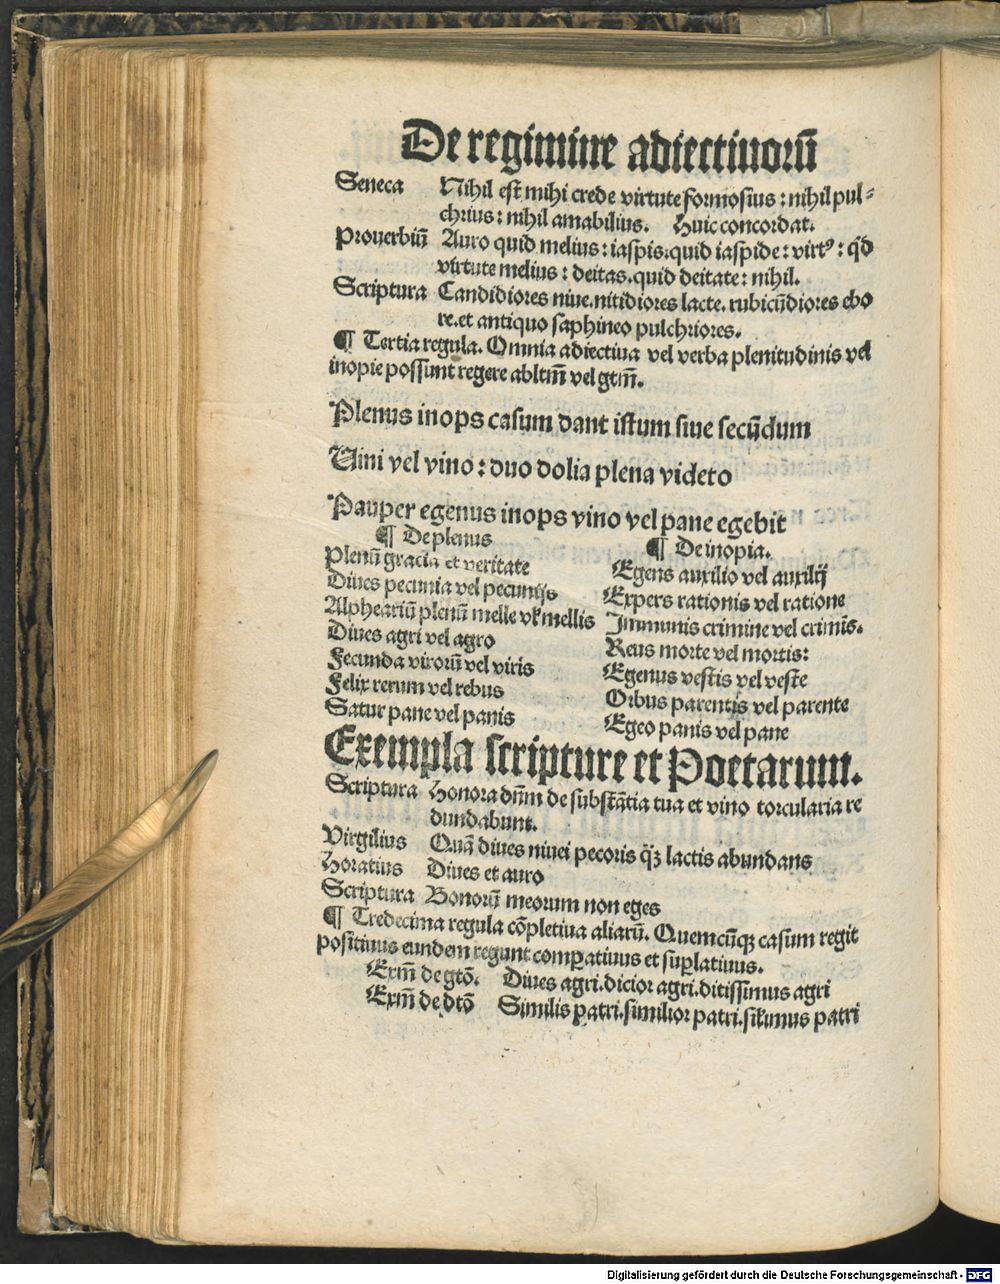 De regimine adiectiuorū
Seneca Nihil est mihi crede virtute formosius : nihil pul⸗
chrius : nihil amabilius. Huic concordat.
Prouerbiū Auro quid melius : iaspis. quid iaspide : virtꝰ : qd̕
virtute melius : deitas. quid deitate : nihil.
Scriptura Candidiores niue. nitidiores lacte. rubicūdiores ebo
re. et antiquo saphireo pulchriores.
¶ Tertia regula. Omnia adiectiua vel verba plenitudinis vel
inopie possunt regere abltm̄ vel gtm̄.
Plenus inops casum dant istum siue secūdum
Uini vel vino : duo dolia plena videto
Pauper egenus inops vino vel pane egebit
¶ De plenus
Plenū gracia et veritate
Diues pecunia vel pecunijs
Alpheariū plenū melle vl̕ mellis
Diues agri vel agro
Fecunda virorū vel viris
Felix rerum vel rebus
Satur pane vel panis
¶ De inopia.
Egens auxilio vel auxilij
Expers rationis vel ratione
Immunis crimine vel crimīs.
Reus morte vel mortis:
Egenus vestis vel veste
Orbus parentis vel parente
Egeo panis vel pane
Exempla scripture et Poetarum.
Scriptura Honora dn̄m de substātia tua et vino torcularia re
dundabunt.
Virgilius Quā diues niuei pecoris q̄ꝫ lactis abundans
Horatius Diues et auro
Scriptura Bonorū meorum non eges
¶ Tredecima regula cōpletiua aliarū. Quemcūqꝫ casum regit
positiuus eundem regunt comꝑatiuus et suꝑlatiuus.
Exm̄ de gtō. Diues agri. dicior agri. ditissimus agri
Exm̄ de dtō Similis patri. similior patri. sil̕imus patri
Digitalisierung gefördert durch die Deutsche Forschungsgemeinschaft - DFG